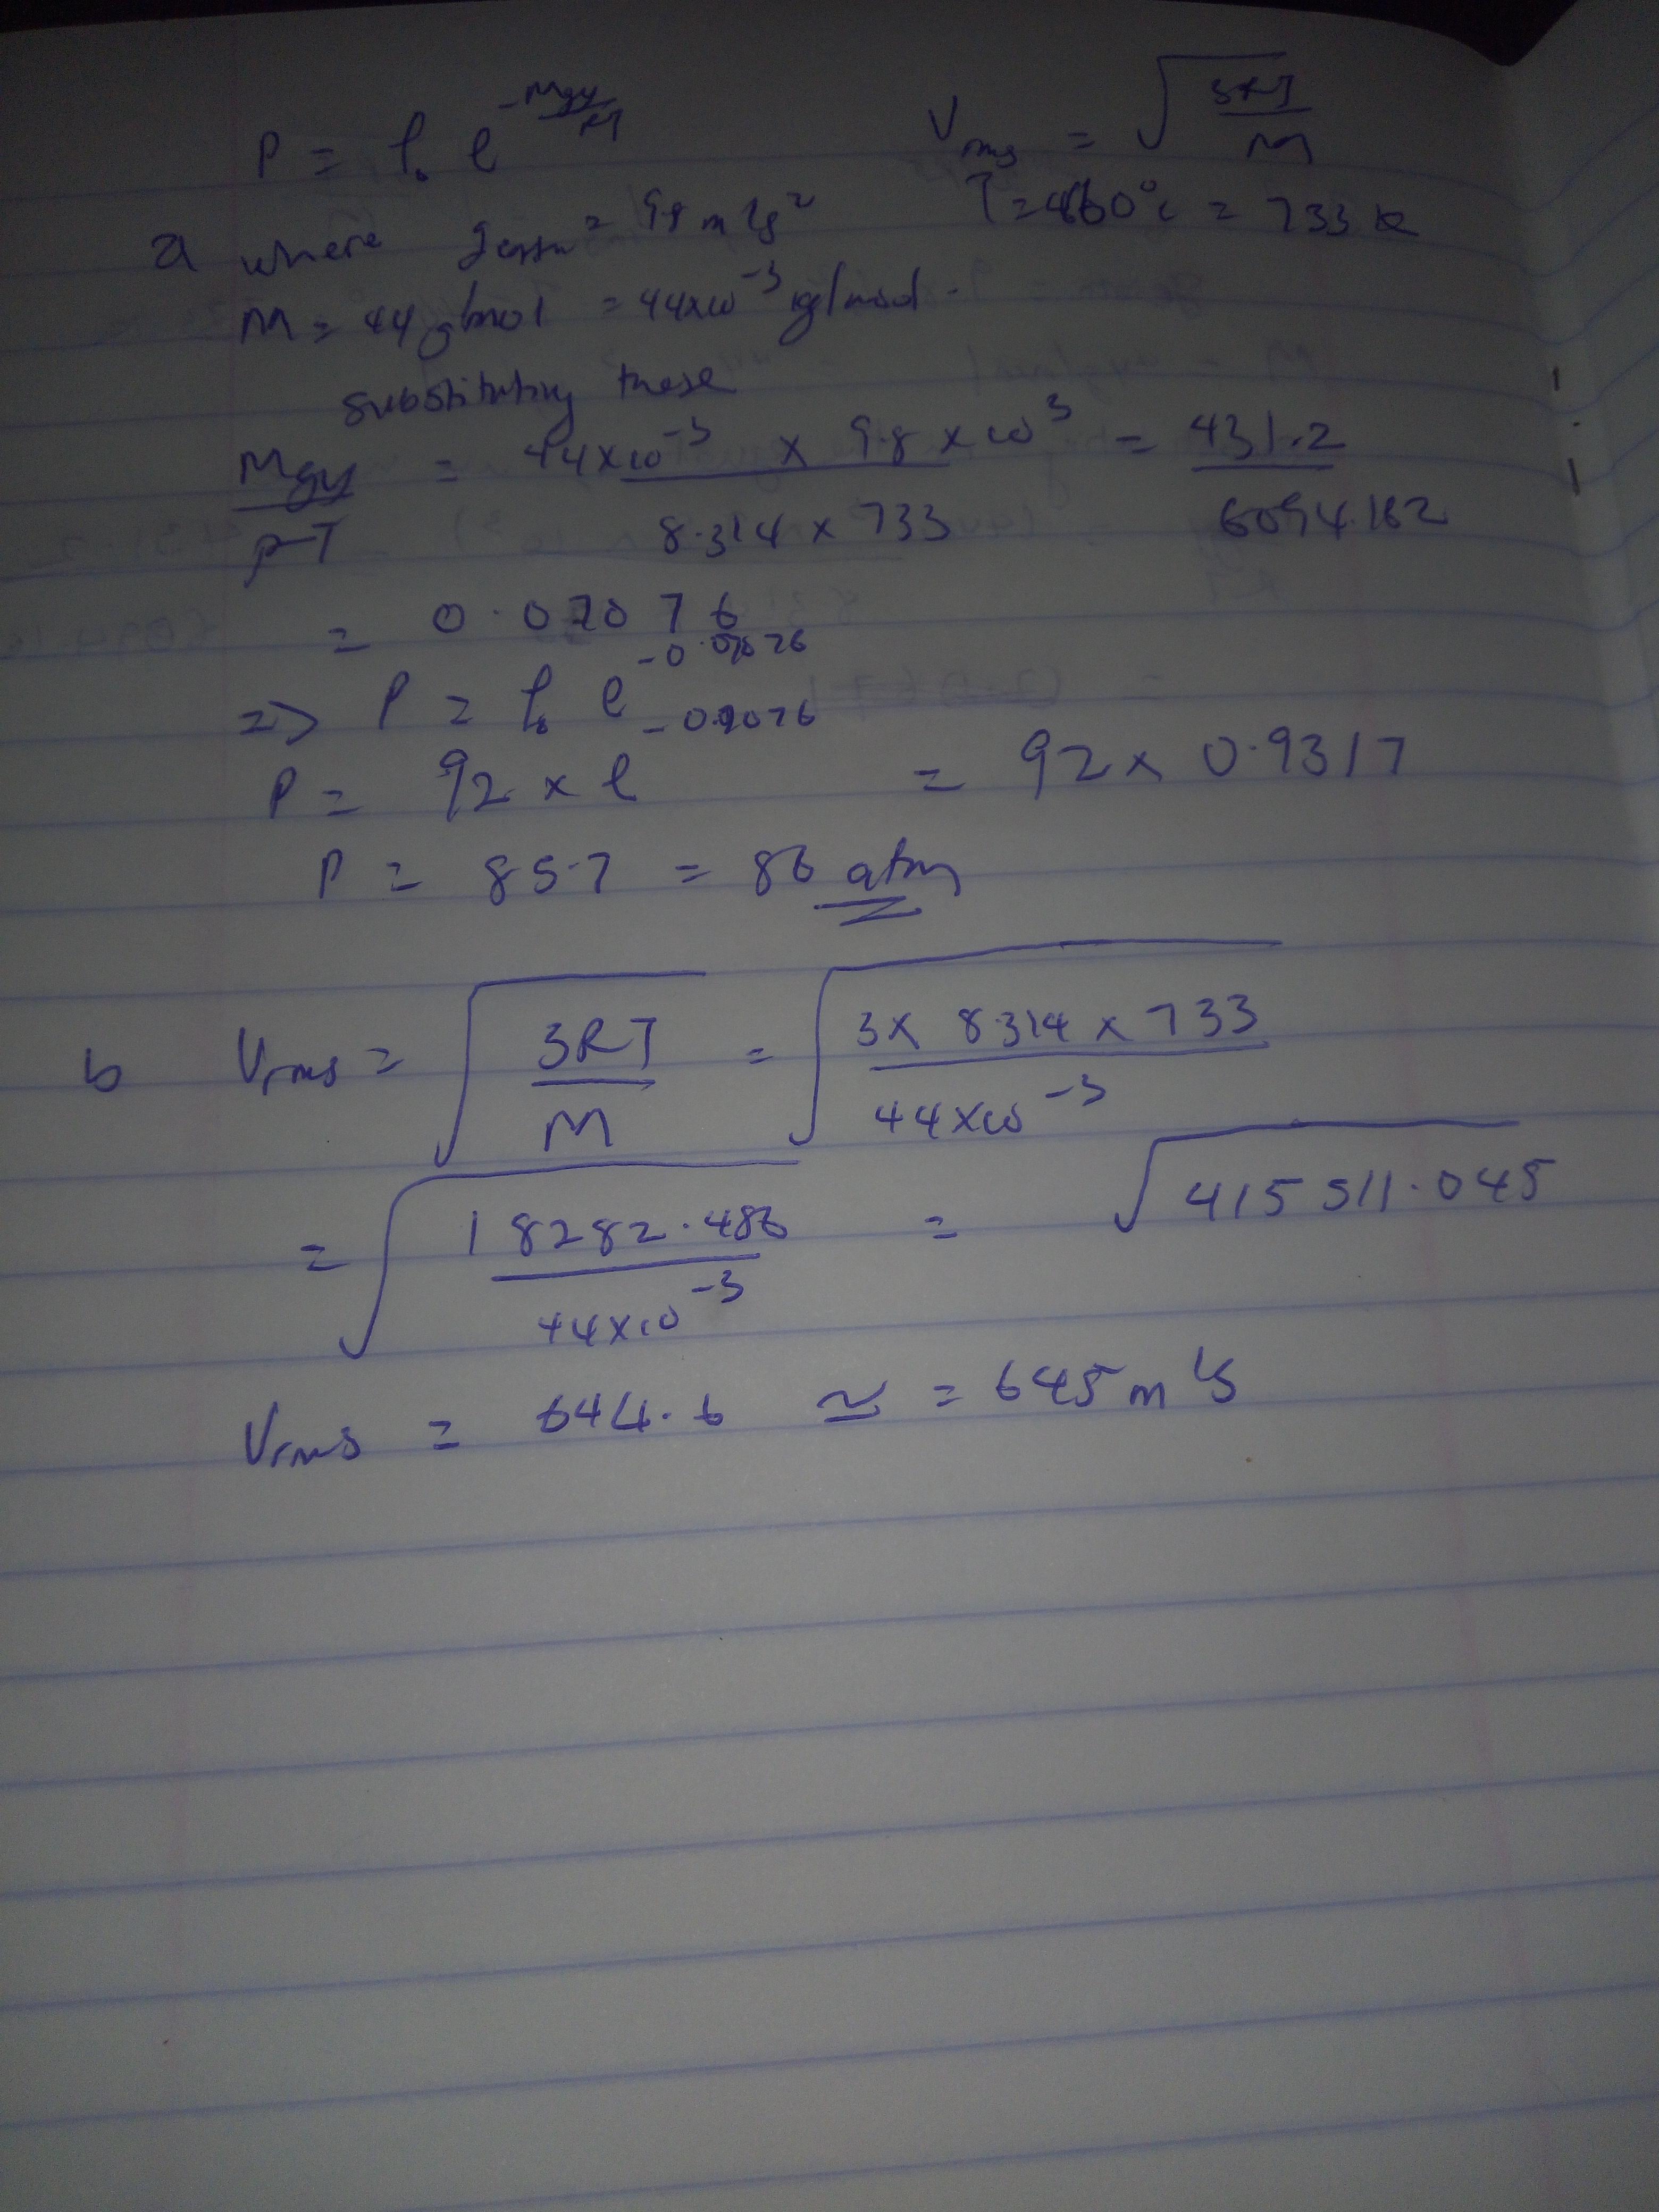 P = P₀ e^(-Mgy/M)
Vrms = √(3RT/M)
T = 460°C = 733 K
a where = 9.8 m/s²
M = 44 g/mol = 44×10⁻³ kg/mol.
substituting these
Mgy/RT = 44×10⁻³ × 9.8 × 10³ / 8.314 × 733 = 431.2 / 6094.162
= 0.07076
=> P = P₀ e^(-0.07076)
P = 92 × e^(-0.07076) = 92 × 0.9317
P = 85.7 = 86 atm
b Vrms = √(3RT/M) = √(3× 8.314 × 733 / 44×10⁻³)
= √(18282.486 / 44×10⁻³) = √415511.045
Vrms = 644.6 ≃ = 645 m/s